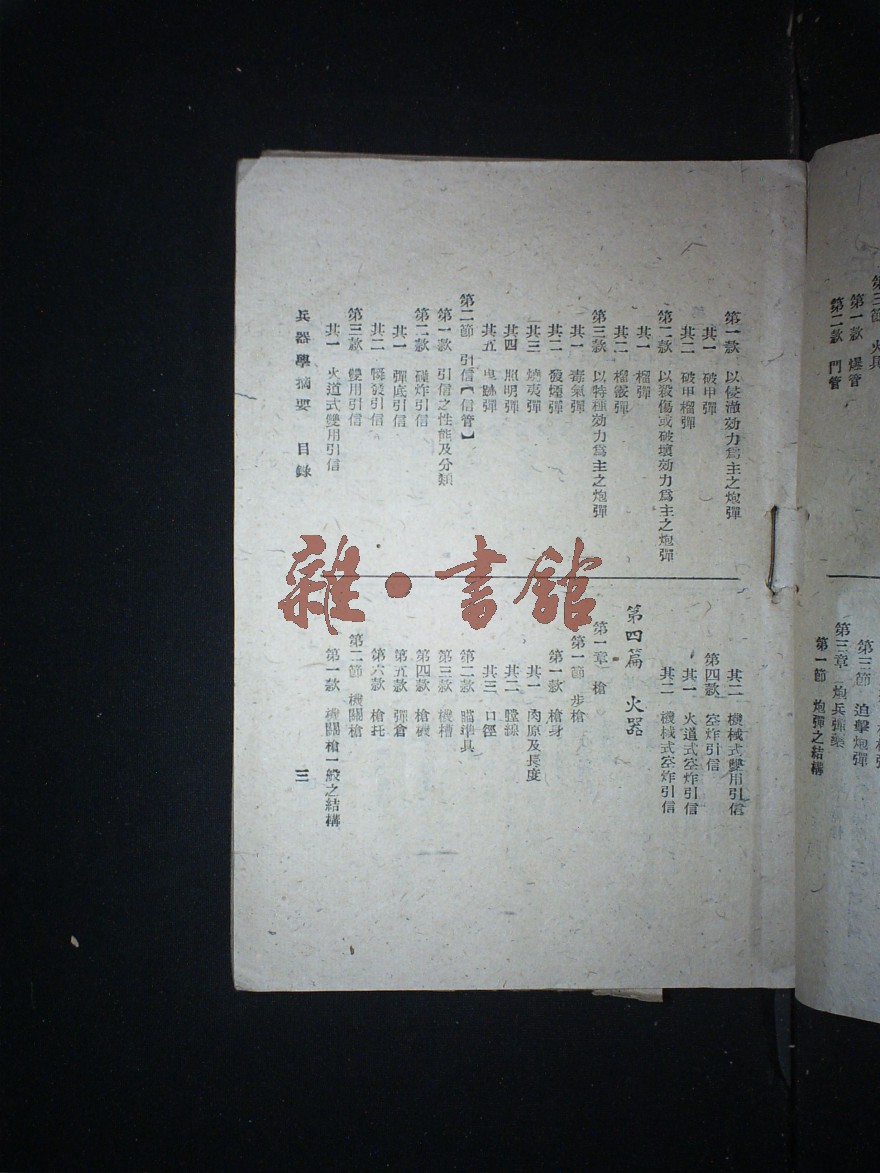 第一款 爆管
第二款 門管
第三節 迫擊炮彈
第三章 炮兵彈藥
第一節 炮彈之結構
第一款 以侵澈効力爲主之炮彈
其一 破甲彈
其二 破甲榴彈
第二款 以殺傷或破壞効力爲主之炮彈
其一 榴彈
其二 榴霰彈
第三款 以特種効力爲主之炮彈
其一 毒氣彈
其二 發煙彈
其三 燒夷彈
其四 照明彈
其五 曳跡彈
第二節 引信【信管】
第一款 引信之性能及分類
第二款 碰炸引信
其一 彈底引信
其二 瞬發引信
第三款 雙用引信
其一 火道式雙用引信
其二 機械式雙用引信
第四款 空炸引信
其一 火道式空炸引信
其二 機械式空炸引信
第四篇 火器
第一章 槍
第一節 步槍
第一款 槍身
其一 肉厚及長度
其二 膛線
其三 口徑
第二款 瞄準具
第三款 機槽
第四款 槍機
第五款 彈倉
第六款 槍托
第二節 機關槍
第一款 機關槍一般之結構
兵器學摘要 目錄
三
雜·書館